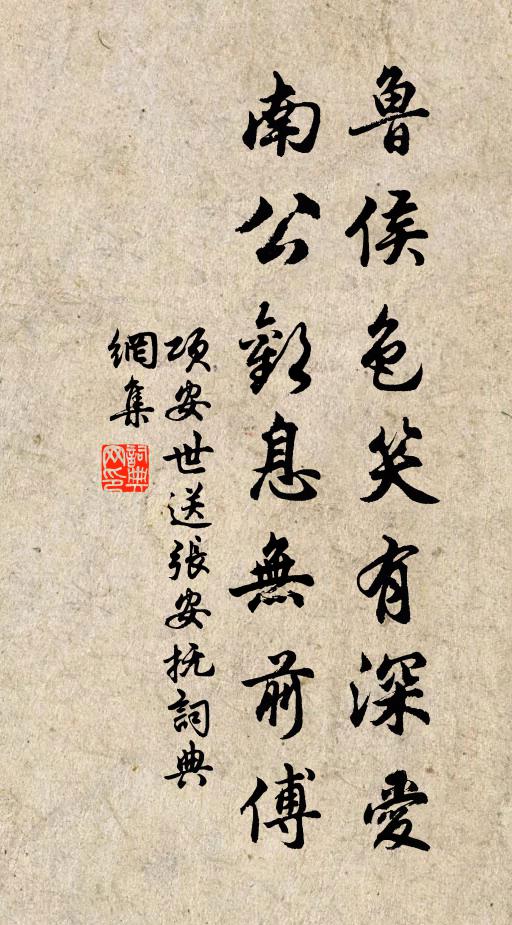 魯侯色笑有深愛
南公歎息無前傅
項安世送張安撫詞典
網集
詞典網印